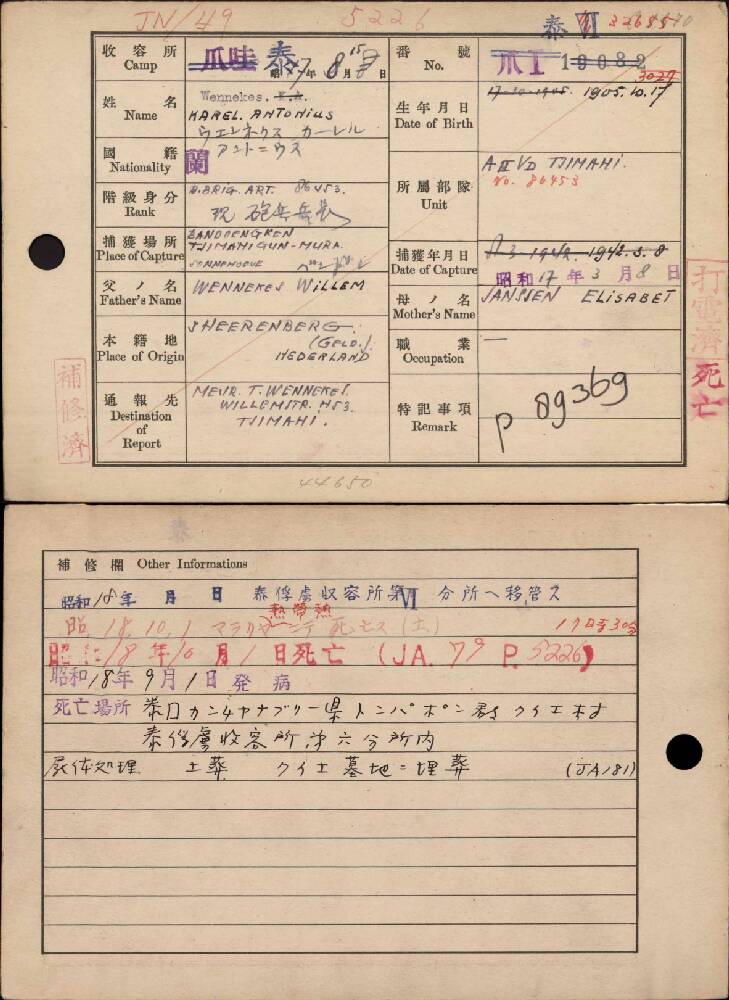 JN/49 5226 泰 VI
収容所 Camp 爪哇 泰 昭17年8月15日
番號 No. 爪 I 19082 3027
姓名 Name Wennekes. K.A.
KAREL. ANTONIUS
ウエンネクス カーレル
アントニウス
生年月日 Date of Birth 17-10-1905. 1905.10.17
國籍 Nationality 蘭
所屬部隊 Unit A II VD TJIMAHI.
No. 86453
階級身分 Rank B.BRIG. ART. 86453.
現 砲兵兵長
捕獲場所 Place of Capture BANDOENGKEN
TJIMAHIGUN-MURA
捕獲年月日 Date of Capture 8-3-1942. 1942.3.8
昭和17年3月8日
父ノ名 Father's Name WENNEKES WILLEM
母ノ名 Mother's Name JANSSEN ELISABET
本籍地 Place of Origin SHEERENBERG.
(GELD.)
NEDERLAND
職業 Occupation —
通報先 Destination of Report MEVR. T. WENNEKES.
WILLEMSTR. H53.
TJIMAHI.
特記事項 Remark P 89369
補修済
打電済 死亡
44650
泰
補修欄 Other Informations
昭和18年 月 日 泰俘虜収容所第VI分所ヘ移管ス
熱帯熱
昭.18.10.1 マラリヤニテ死亡ス(土) 17時30分
昭和18年10月1日死亡 (JA.79 P.5226)
昭和18年9月1日発病
死亡場所 泰国カンチヤナブリー県トンパポン郡クイエ村
泰俘虜收容所第六分所内
屍体処理 土葬 クイエ墓地ニ埋葬 (JA181)